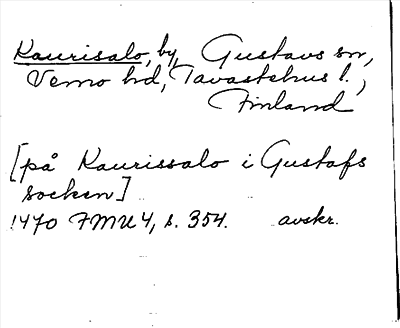 Kaurisalo, by, Gustavs sn,
Vemo hd, Tavastehus l.,
Finland
[på Kaurissalo i Gustafs
socken]
1470 FMU 4, s. 354. avskr.